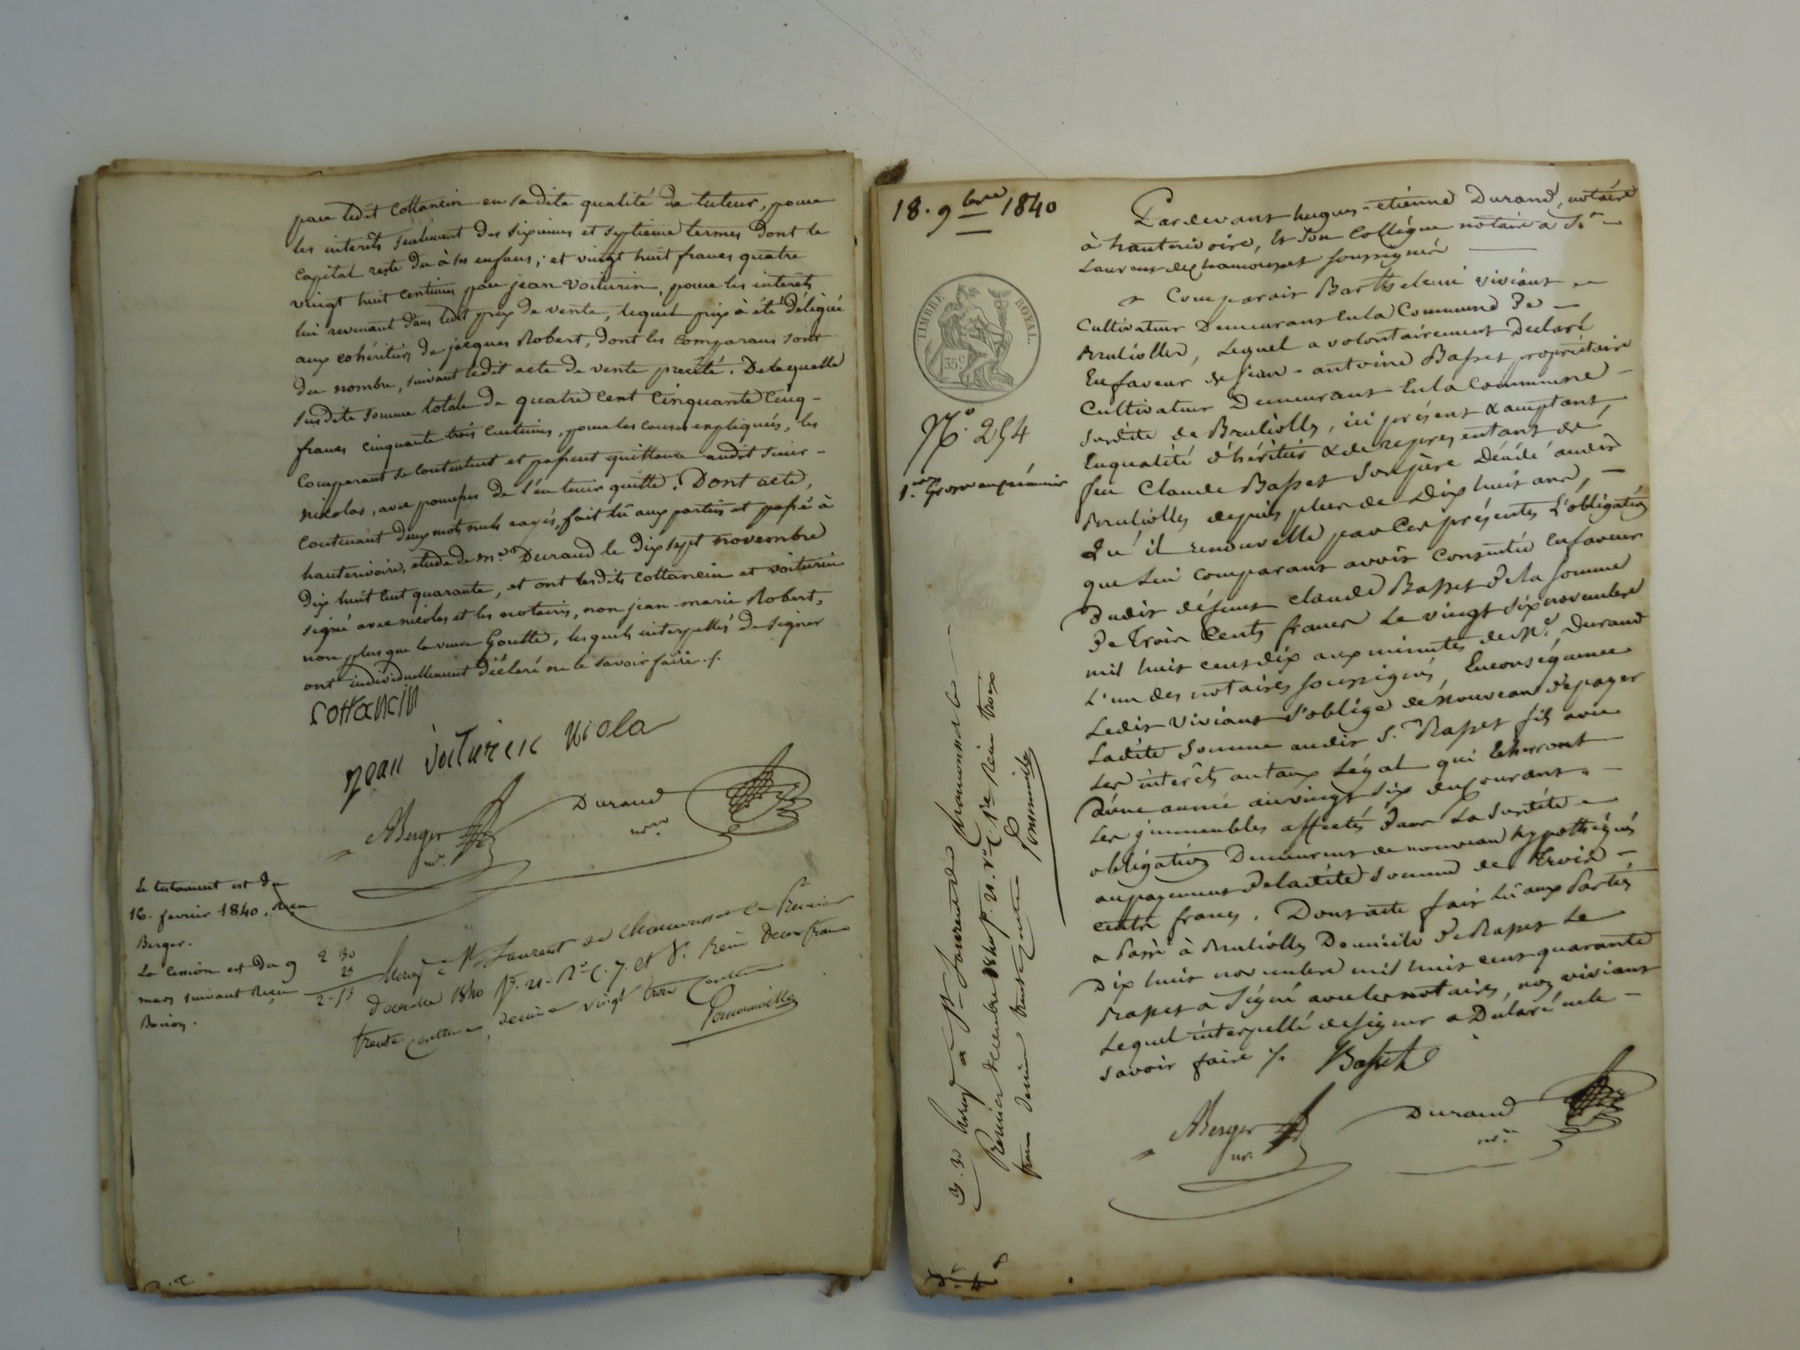 par ledit Cottancin en sadite qualité de tuteur, pour
les interêts seulement des sixiemes et septieme termes dont le
capital reste du à ses enfans; et vingt huit francs quatre
vingt huit centimes par jean Voiturin, pour les interêts
lui revenant dans ledit prix de vente, lequel prix à été délégué
aux cohéritiers de jacques Robert, dont les comparans sont
du nombre, suivant ledit acte de vente précité. De laquelle
susdite somme totale de quatre cent cinquante cinq
francs cinquante trois centimes, pour les causes expliquées, les
comparans se contentent et passent quittance audit sieur
nicolas, avec promesse de l'en tenir quitte. Dont acte,
contenant deux mots nuls rayés, fait lû aux parties et passé à
hauterivoire, étude de me. Durand le dix sept novembre
dix huit cent quarante, et ont lesdits Cottancin et voiturin
signé avec nicolas et les notaires, non jean-marie Robert,
non plus que la veuve Goutte, lesquels interpellés de signer
ont individuellement déclaré ne le savoir faire ./.
Cottancin
jean voiturin nicola
ABerger Durand
nre. nre
Le testament est du
16. fevrier 1840. Reçu
Berger.
La Cession est du 9
mars suivant Reçu
2 30
23
2-53
Enreg. à St Laurent de Chamousset le Premier
décembre 1840 fo. 21. Ro C. 7. et 8. Reçu deux francs
trente centimes, decime vingt trois centimes
18. 9bre 1840
TIMBRE ROYAL
35 c.
No. 254
1re Grosse au créancier
3.30 Enreg. à St Laurent de Chamousset le
Premier decembre 1840 fo. 21. Vo C. 1re Reçu trois
francs decime trente centimes
Pardevant hugues-etienne Durand, notaire
à hauterivoire, Et son Collègue notaire à St.
Laurent de chamousset soussignés
Comparait Barthelemi viviant
Cultivateur Demeurant en la Commune de
Brullioles, Lequel a volontairement Déclaré
En faveur de jean-antoine Basset propriétaire
Cultivateur Demeurant En la Commune
susdite de Brullioles, ici présent & acceptant,
En qualité d'héritier & de représentant de
feu Claude Basset son père Décédé audit
Brullioles depuis plus de Dix huit ans,
Qu'il renouvelle par Ces présentes L'obligation
que Lui comparant avoit consentie En faveur
Dudit défunt claude Basset de la somme
De trois Cents francs Le vingt six novembre
mil huit cent dix aux minutes de Me. Durand
L'un des notaires soussignés, En conséquence
Ledit viviant s'oblige de nouveau de payer
Ladite somme audit S. Basset fils avec
Les interêts au taux Légal qui Echerront
D'une année au vingt six du courant.
Les jmmeubles affectés Dans La susdite
obligation Demeurent de nouveau hypothéqués
au payement de ladite somme de trois
cents francs. Dont acte fait Lû aux Parties
& Passé à Brullioles Domicile de Basset Le
Dix huit novembre mil huit cent quarante
Basset a signé avec les notaires, non viviant
Lequel interpellé de signer a Déclaré ne le
savoir faire ./. Basset
ABerger Durand
nre. nre